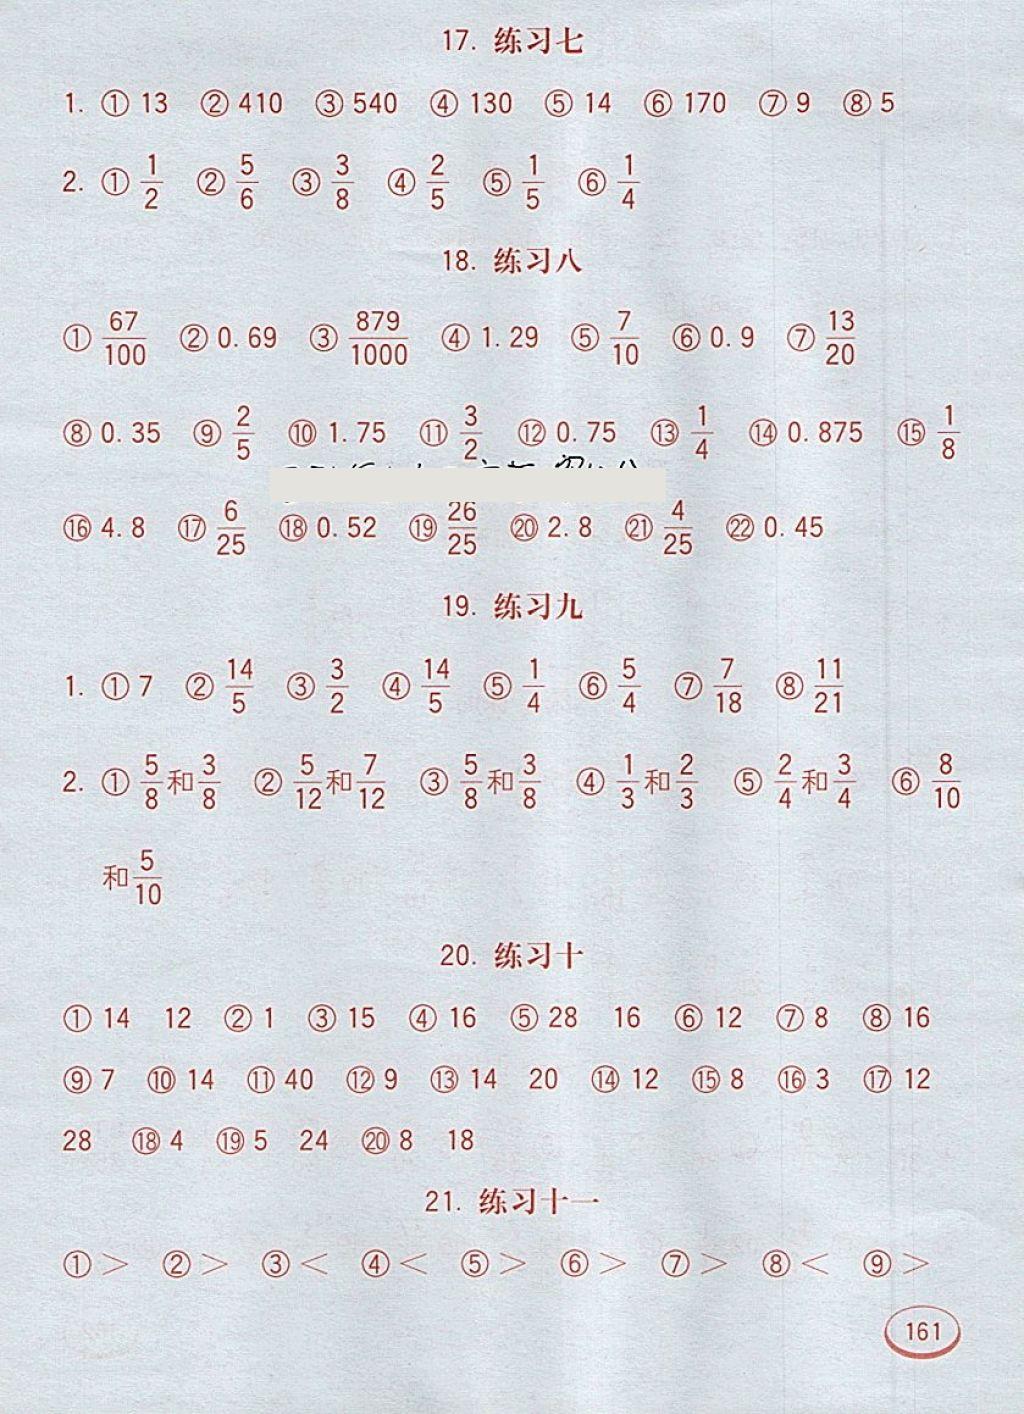 17. 练习七
1. ① 13 ② 410 ③ 540 ④ 130 ⑤ 14 ⑥ 170 ⑦ 9 ⑧ 5
2. ① 1/2 ② 5/6 ③ 3/8 ④ 2/5 ⑤ 1/5 ⑥ 1/4
18. 练习八
① 67/100 ② 0.69 ③ 879/1000 ④ 1.29 ⑤ 7/10 ⑥ 0.9 ⑦ 13/20
⑧ 0.35 ⑨ 2/5 ⑩ 1.75 ⑪ 3/2 ⑫ 0.75 ⑬ 1/4 ⑭ 0.875 ⑮ 1/8
⑯ 4.8 ⑰ 6/25 ⑱ 0.52 ⑲ 26/25 ⑳ 2.8 ㉑ 4/25 ㉒ 0.45
19. 练习九
1. ① 7 ② 14/5 ③ 3/2 ④ 14/5 ⑤ 1/4 ⑥ 5/4 ⑦ 7/18 ⑧ 11/21
2. ① 5/8和3/8 ② 5/12和7/12 ③ 5/8和3/8 ④ 1/3和2/3 ⑤ 2/4和3/4 ⑥ 8/10
和5/10
20. 练习十
① 14 12 ② 1 ③ 15 ④ 16 ⑤ 28 16 ⑥ 12 ⑦ 8 ⑧ 16
⑨ 7 ⑩ 14 ⑪ 40 ⑫ 9 ⑬ 14 20 ⑭ 12 ⑮ 8 ⑯ 3 ⑰ 12
28 ⑱ 4 ⑲ 5 24 ⑳ 8 18
21. 练习十一
① > ② > ③ < ④ < ⑤ > ⑥ > ⑦ > ⑧ < ⑨ >
161